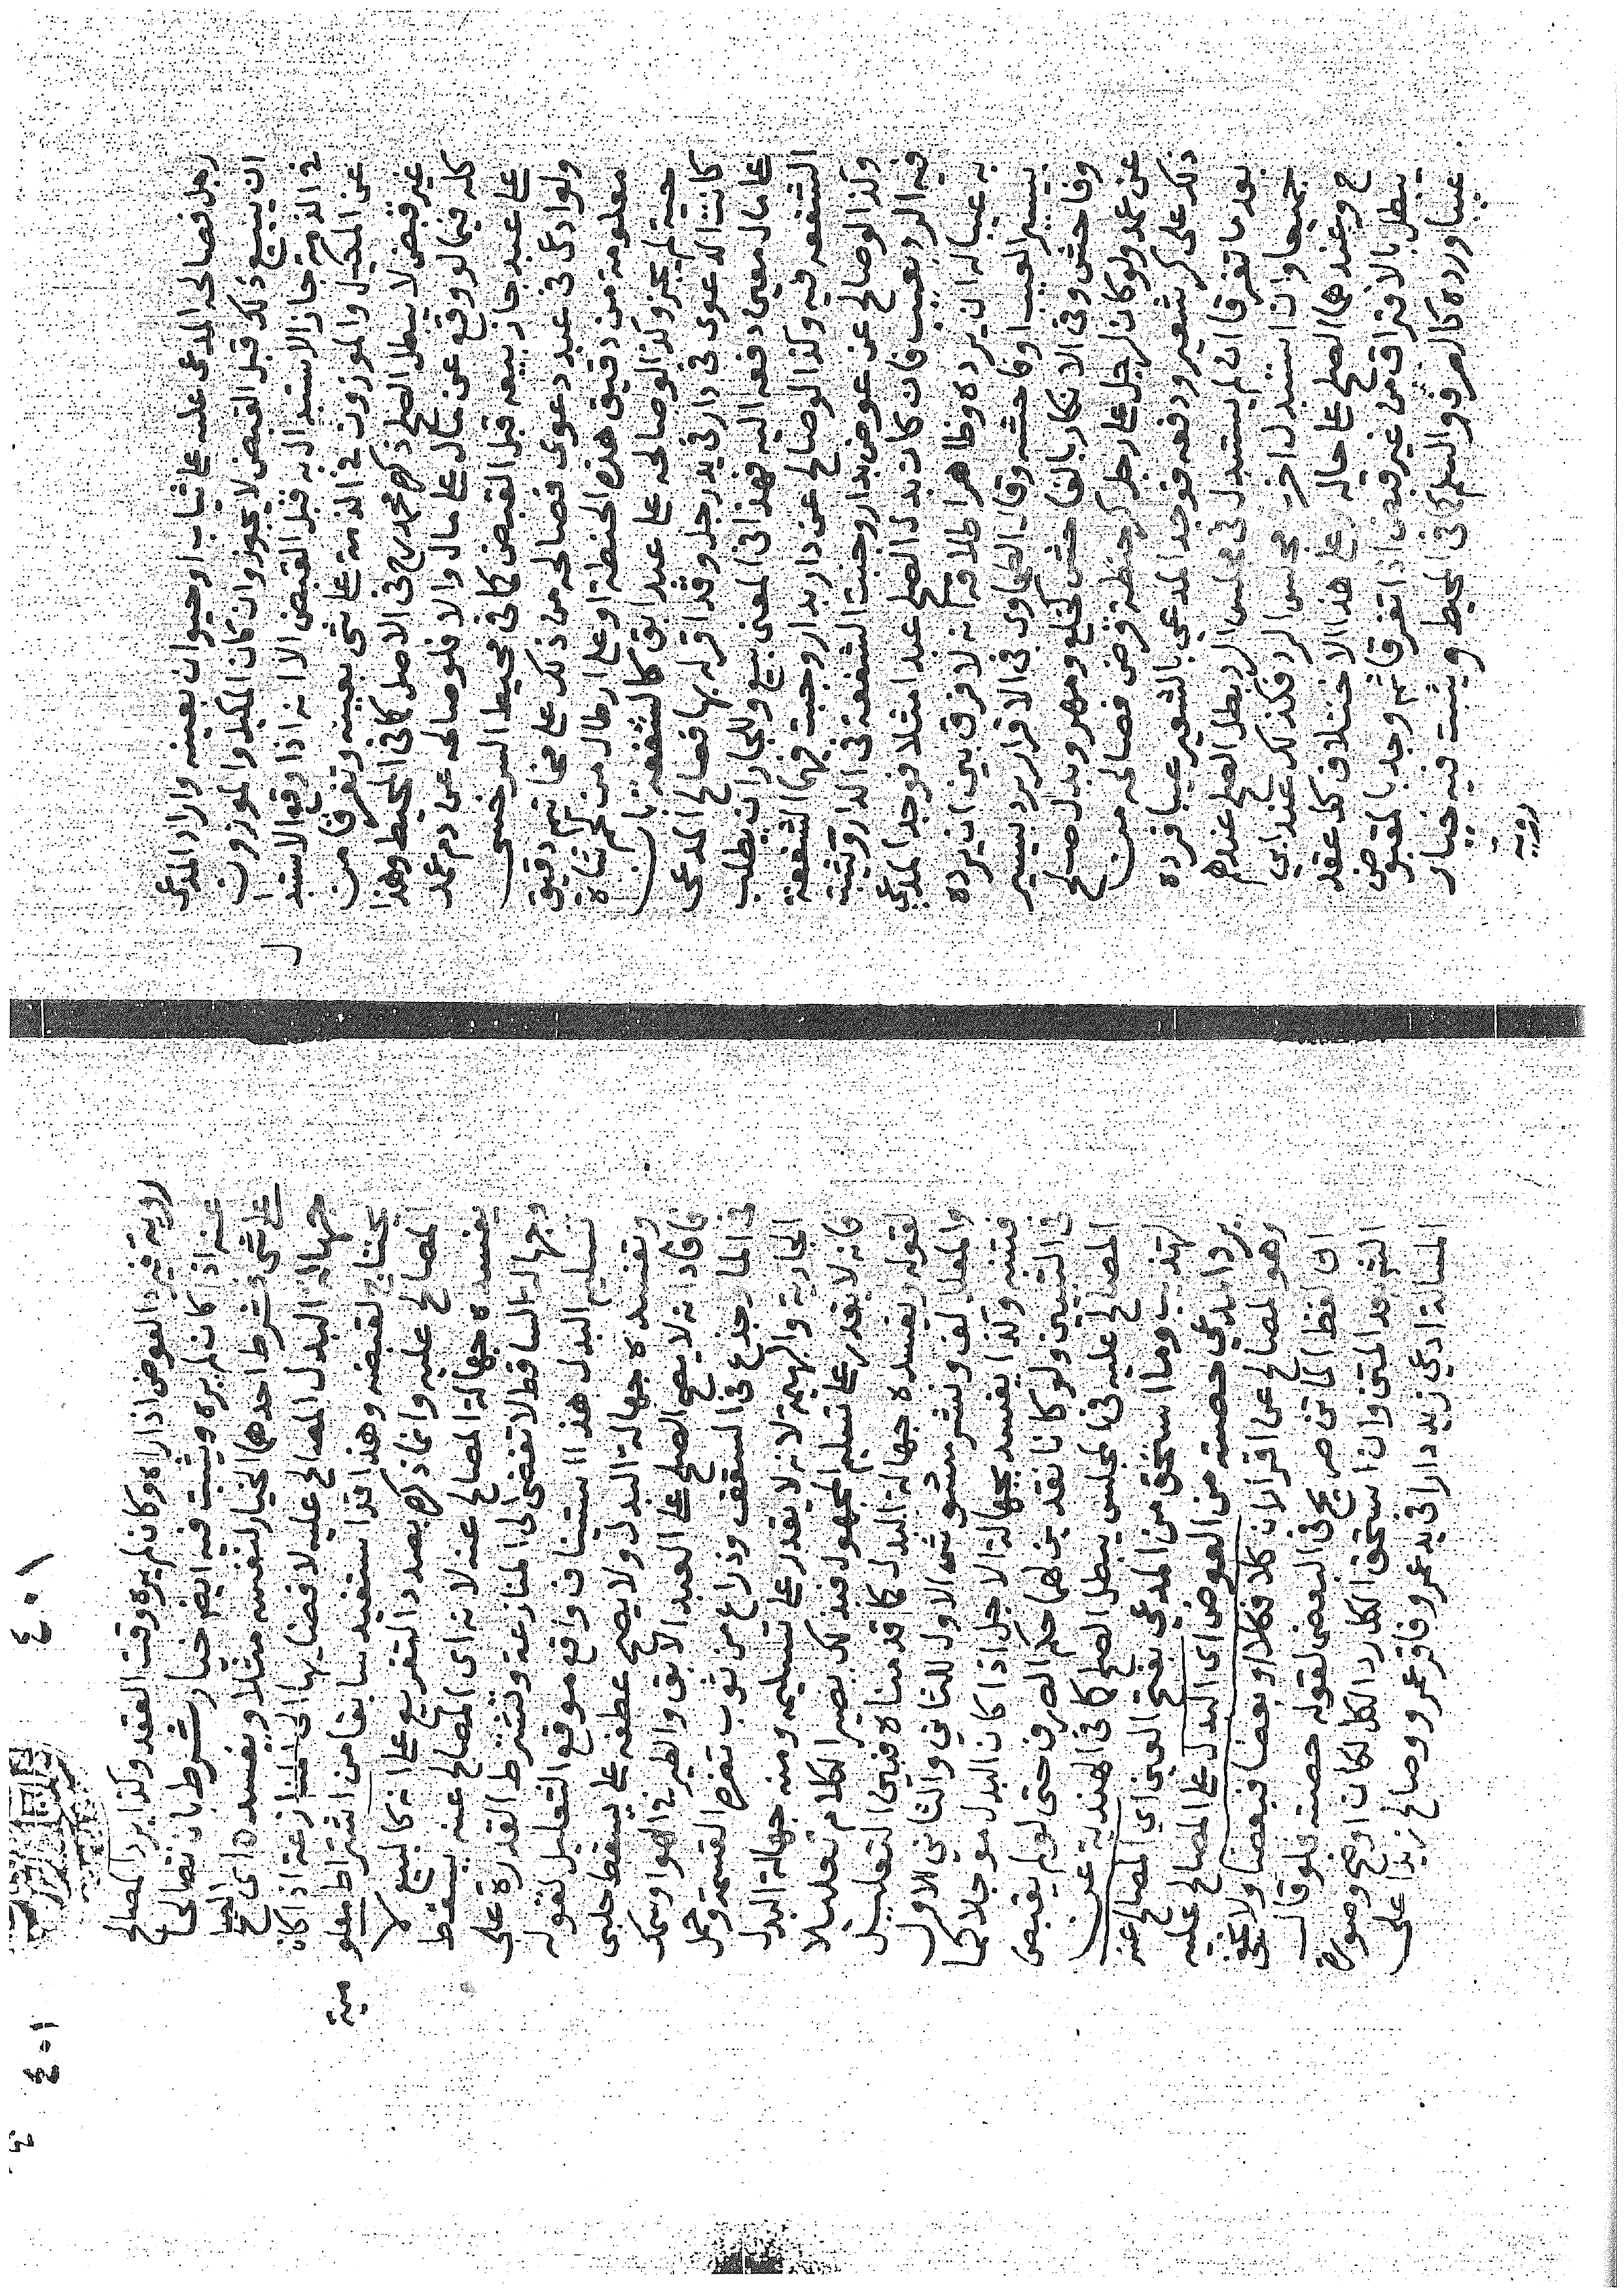 رجل فصالحه المدعى عليه على ثياب او حيوان بعينه واراد المدعى
ان يبيع ذلك قبل القبض لا يجوز وان كان المكيل والموزون
في الذمة جاز الاستبدال به قبل القبض الا انه اذا وقع الاستبدا
ل
عن المكيل والموزون في الذمة على شى بعينه وتفرقا من
غير قبض لا يبطل الصلح ذكره محمد رح في الاصل كما في المحيط وهذا
كله فيما لو وقع عن مال على مال والا فلو صالحه عن دم عمد
على عبد جاز بيعه قبل القبض كما في محيط السرخسى
ولو ادعى في عبد دعوى فصالحه من ذلك على مخاتيم دقيق
معلومة من دقيق هذه الحنطة او على ارطال من لحم شاة
حية لم يجز وكذا لو صالحه على عبد ابق كالشفعة بان
كانت الدعوى في دار في يد رجل وقد اقر له بها فصالح المدعى
على مال معين دفعه اليه فهذا في المعنى بيع وللجار ان يطلب
الشفعه فيه وكذا لو صالح عن دار بدار وجبت فيهما الشفعة
وكذا لو صالح عن عوض بدار وجبت الشفعة في الدار وتثبت
فيه الرد بعيب فان كان بدل الصلح عبدا مثلا فوجد المدعى
به عيبا له ان يرده وظاهر اطلاقهم انه لا فرق بين ان يرده
بيسير العيب او فاحشه وقال الطحاوى في الاقرار يرد بيسير
وفاحش وفي الانكار بالفاحش كخلع ومهر وبدل صلح
عن عمد ولو كان لرجل على رجل كر حنطة قرض فصالحه من
ذلك على كر شعير ودفعه فوجد المدعي بالشعير عيبا فرده
بعد ما تفرقا ان لم يستبدل في مجلس الرد بطل الصلح عندهم
جميعا وان استبدل اخر في مجلس الرد فكذلك عند ابي
ح وعندهما الصلح على حاله وعلى هذا الاختلاف كل عقد
يبطل بالافتراق من غير قبض اذا تفرقا ثم وجد بالمقبوض
عيبا ورده كالصرف والسلم كما في المحيط ويثبت فيه خيار
روية
٤٠١
رويه فيرد العوض اذا راه وكان لم يره وقت العقد وكذا يرد المصالح
عنه اذا كان لم يره ويثبت فيه ايضا خيار شرط بان تصالحا
على شى فشرط احدهما الخيار لنفسه مثلا ويفسده اى الصلح
جهالة البدل المصالح عليه لافضايها الى المنازعة اذا كان
يحتاج لقبضه وهذا قد استفيد سابقا من اشتراط معلو
مية
المصالح عليه وانما ذكره بصدد التفريع على انه كالبيع لا
يفسده جهالة المصالح عنه لانه اى المصالح عنه يسقط
وجهالة الساقط لا تفضى الى المنازعة وتشترط القدرة على
تسليم البدل هذا استيناف واقع موقع التعليل لقوله
وتفسده جهالة البدل ولا يصح عطفه على يسقط حلبى
فافاد انه لا يصح الصلح على العبد الابق والطير في الهوا وسمك
في الما وجذع في السقف وذراع من ثوب تضره القسمة وحمل
الجارية والبهيمة لانه لا يقدر على تسليمه ومنه جهالة البدل
فانه لا يقدر على تسليم المجهول فبذلك يصير الكلام تعليلا
لقوله ويفسده جهالة البدل كما قدمناه فبين التعليل
والمعلل لف ونشر مشوش الاول للثاني والثاني للاول
فتنبه وكذا يفسد بجهالة الاجل اذا كان البدل موجلا كما
في التبيين ولو كانا نقدين لهما حكم الصرف حتى لو لم يقبض
المصالح عليه في المجلس يبطل الصلح كما في الهندية عن
التهذيب وما استحق من المدعي بفتح العين اي المصالح عنه
يرد المدعي حصته من العوض اى البدل على المصالح عليه
وهو لمصالح عن اقرار ان كلا فكلا او بعضا فبعضا ولا يخفى
ان لفظ الماتن صريح في البعض لقوله حصته فلو قال
الش بعد المتن وان استحق الكل رد الكل لكان اوضح وصورة
المسالة ادعي زيد دارا في يد عمرو فاقر عمرو وصالح زيدا على